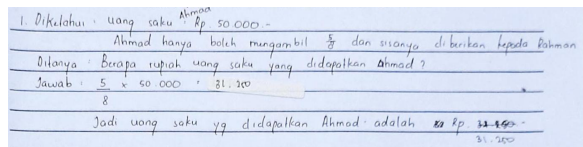 1. Diketahui : uang saku Ahmad Rp. 50.000.-
Ahmad hanya boleh mengambil 5/8 dan sisanya diberikan kepada Rahman
Ditanya : Berapa rupiah uang saku yang didapatkan Ahmad?
Jawab : 5/8 x 50.000 = 31.250
Jadi uang saku yg didapatkan Ahmad adalah Rp. 31.250